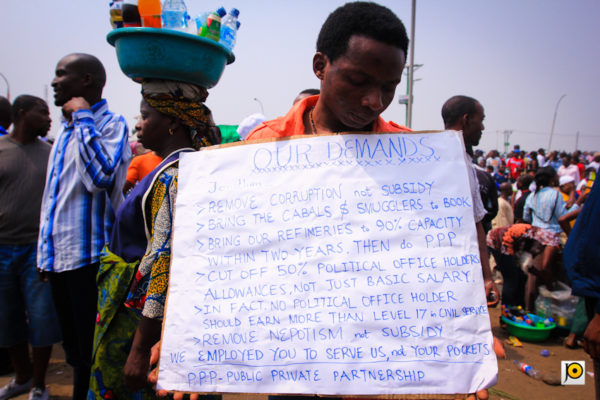 OUR DEMANDS
Jonathan
> REMOVE CORRUPTION not SUBSIDY
> BRING THE CABALS & SMUGGLERS to BOOK
> BRING OUR REFINERIES to 90% CAPACITY
WITHIN TWO-YEARS. THEN do PPP
> CUT OFF 50% POLITICAL OFFICE HOLDERS
ALLOWANCES, NOT JUST BASIC SALARY.
> IN FACT. NO POLITICAL OFFICE HOLDER
SHOULD EARN MORE THAN LEVEL 17 in CIVIL SERVICE
> REMOVE NEPOTISM not SUBSIDY
WE EMPLOYED YOU TO SERVE US, not YOUR POCKETS
PPP - PUBLIC PRIVATE PARTNERSHIP